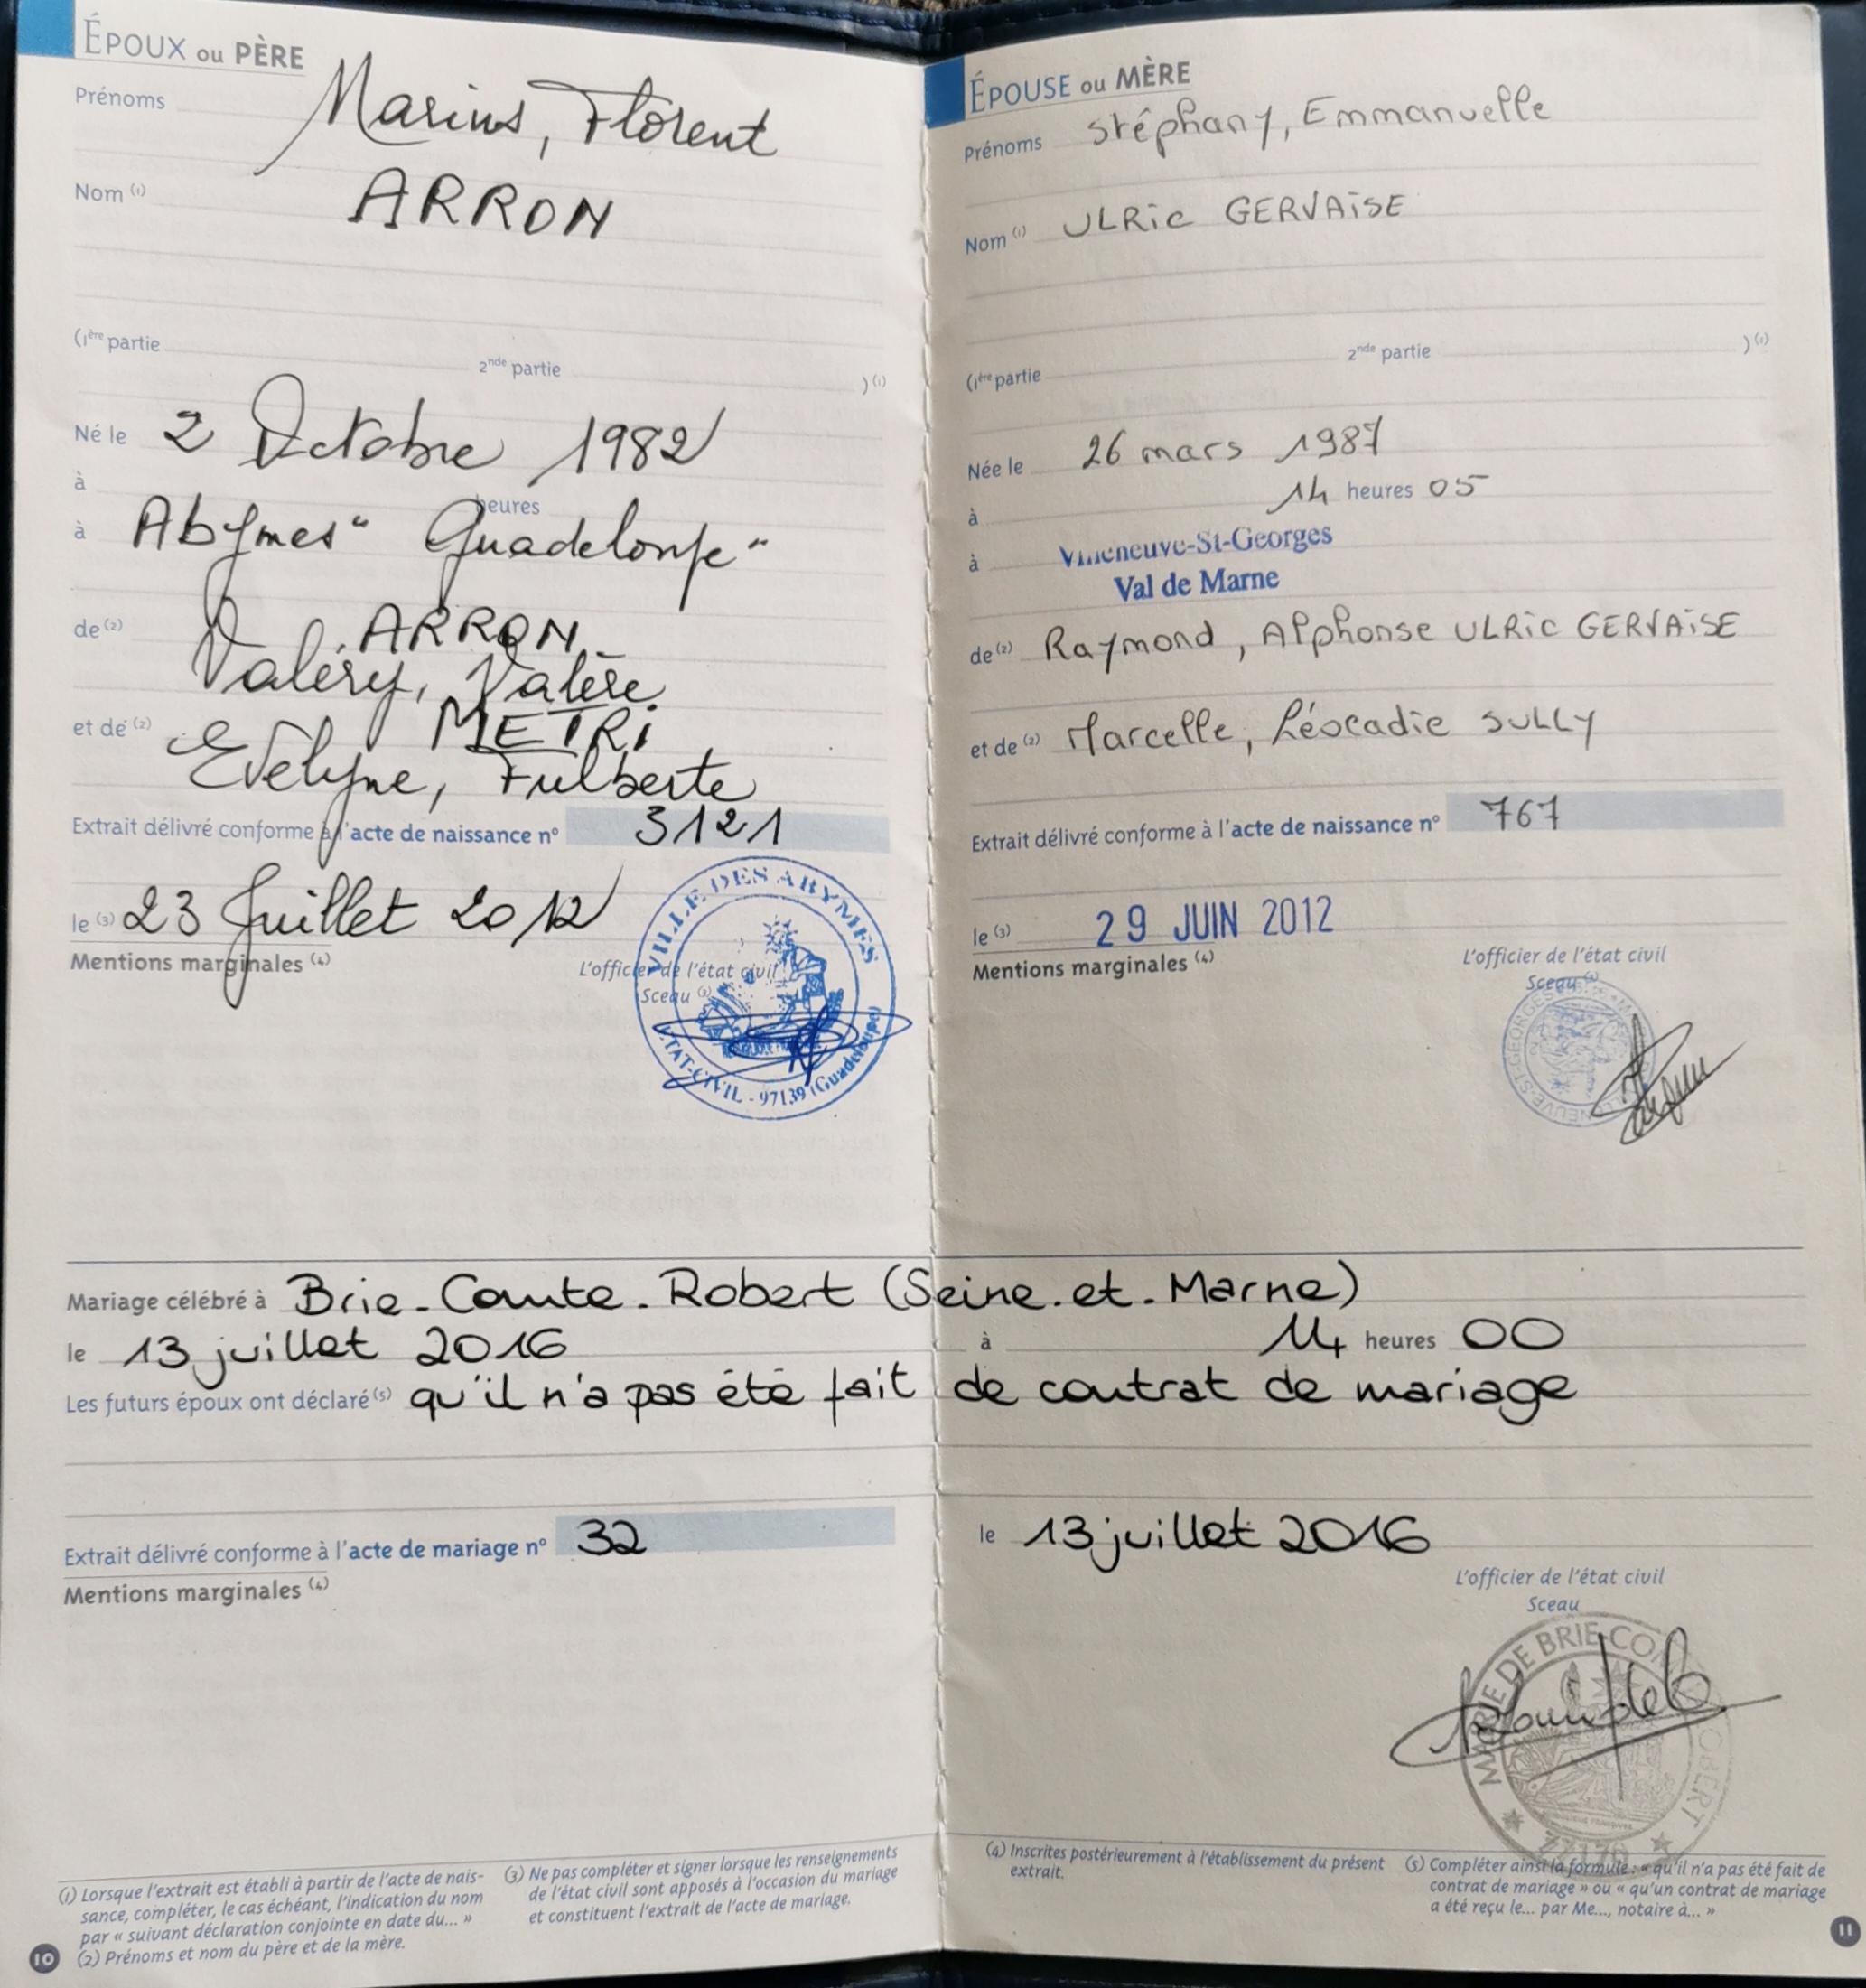 ÉPOUX ou PÈRE
Prénoms Marius, Florent
Nom (1) ARRON
(1ère partie
2nde partie ) (1)
Né le 2 Octobre 1982
à heures
à Abymes " Guadeloupe "
de (2) ARRON
Valéry, Valère
et de (2) METRI
Evelyne, Fulberte
Extrait délivré conforme à l'acte de naissance n° 3121
le (3) 23 Juillet 2012
Mentions marginales (4)
L'officier de l'état civil
Sceau (3)
VILLE DES ABYMES
ETAT-CIVIL - 97139 (Guadeloupe)
ÉPOUSE ou MÈRE
Prénoms Stéphany, Emmanuelle
Nom (1) ULRic GERVAiSE
(1ère partie 2nde partie ) (1)
Née le 26 mars 1987
à 14 heures 05
à Villeneuve-St-Georges
Val de Marne
de (2) Raymond, Alphonse ULRic GERVAiSE
et de (2) Marcelle, Léocadie SULLY
Extrait délivré conforme à l'acte de naissance n° 767
le (3) 29 JUIN 2012
Mentions marginales (4)
L'officier de l'état civil
Sceau (3)
Mariage célébré à Brie-Comte-Robert (Seine-et-Marne)
le 13 juillet 2016 à 14 heures 00
Les futurs époux ont déclaré (5) qu'il n'a pas été fait de contrat de mariage
Extrait délivré conforme à l'acte de mariage n° 32 le 13 juillet 2016
Mentions marginales (4)
L'officier de l'état civil
Sceau
MAIRIE DE BRIE-COMTE-ROBERT
77170
(1) Lorsque l'extrait est établi à partir de l'acte de nais-
sance, compléter, le cas échéant, l'indication du nom
par « suivant déclaration conjointe en date du... »
(2) Prénoms et nom du père et de la mère.
(3) Ne pas compléter et signer lorsque les renseignements
de l'état civil sont apposés à l'occasion du mariage
et constituent l'extrait de l'acte de mariage.
10
(4) Inscrites postérieurement à l'établissement du présent
extrait.
(5) Compléter ainsi la formule : « qu'il n'a pas été fait de
contrat de mariage » ou « qu'un contrat de mariage
a été reçu le... par Me..., notaire à... »
11